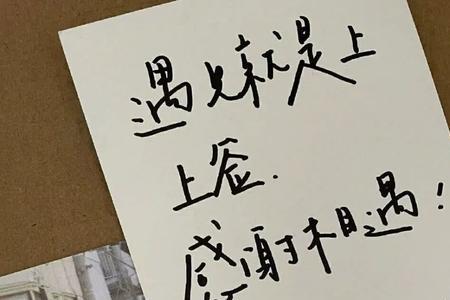 遇见就是上
上签.
感谢相遇!